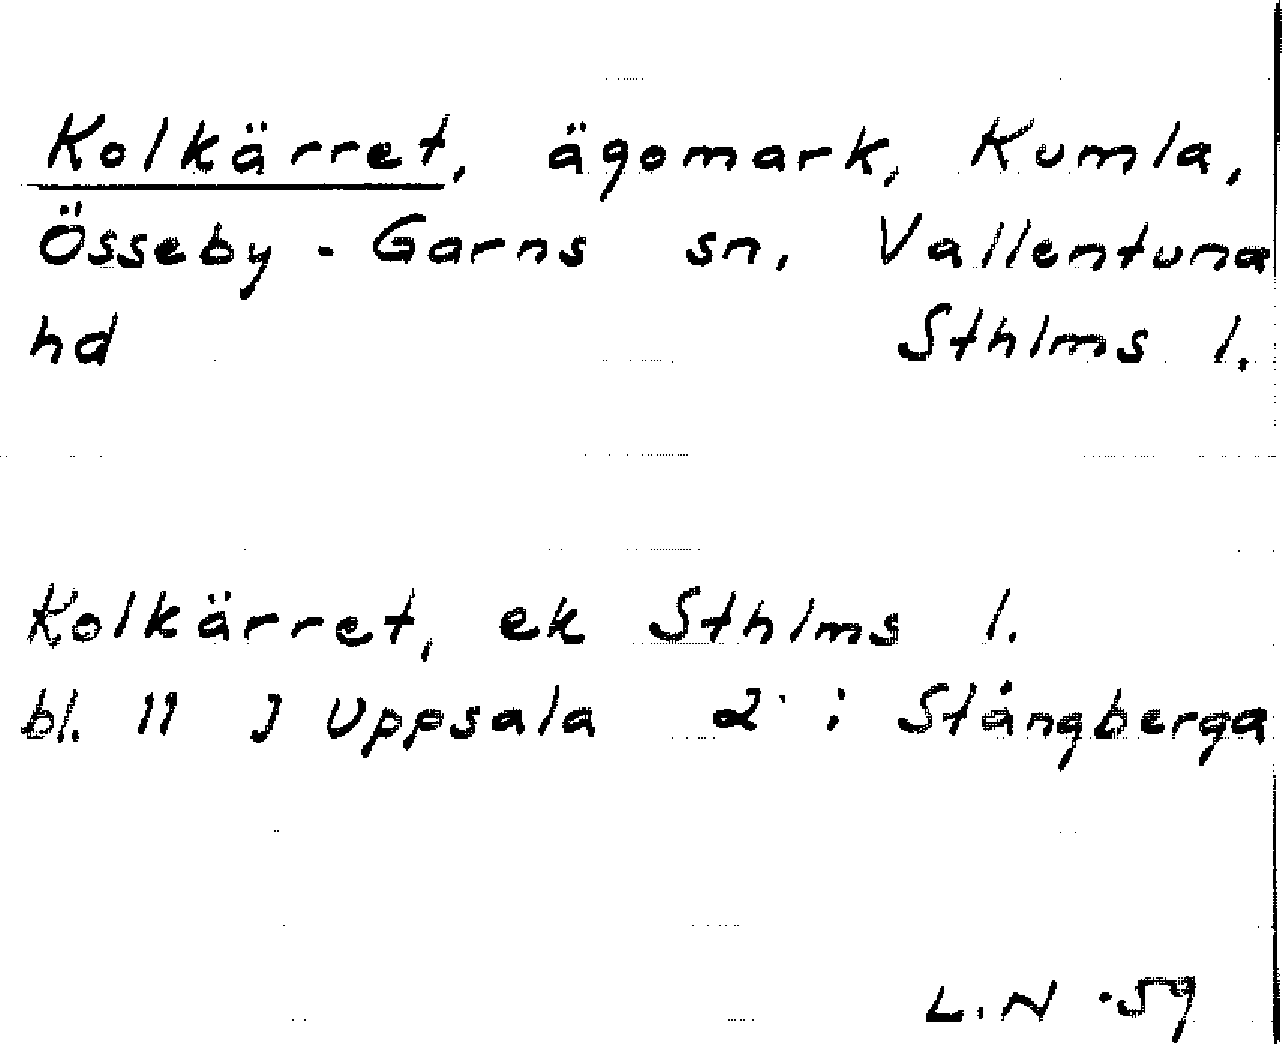 Kolkärret, ägomark, Kumla,
Össeby - Garns sn, Vallentuna
hd Sthlms l.
Kolkärret, ek Sthlms l.
bl. 11 J Uppsala 2 i Stångberga
L.N -59